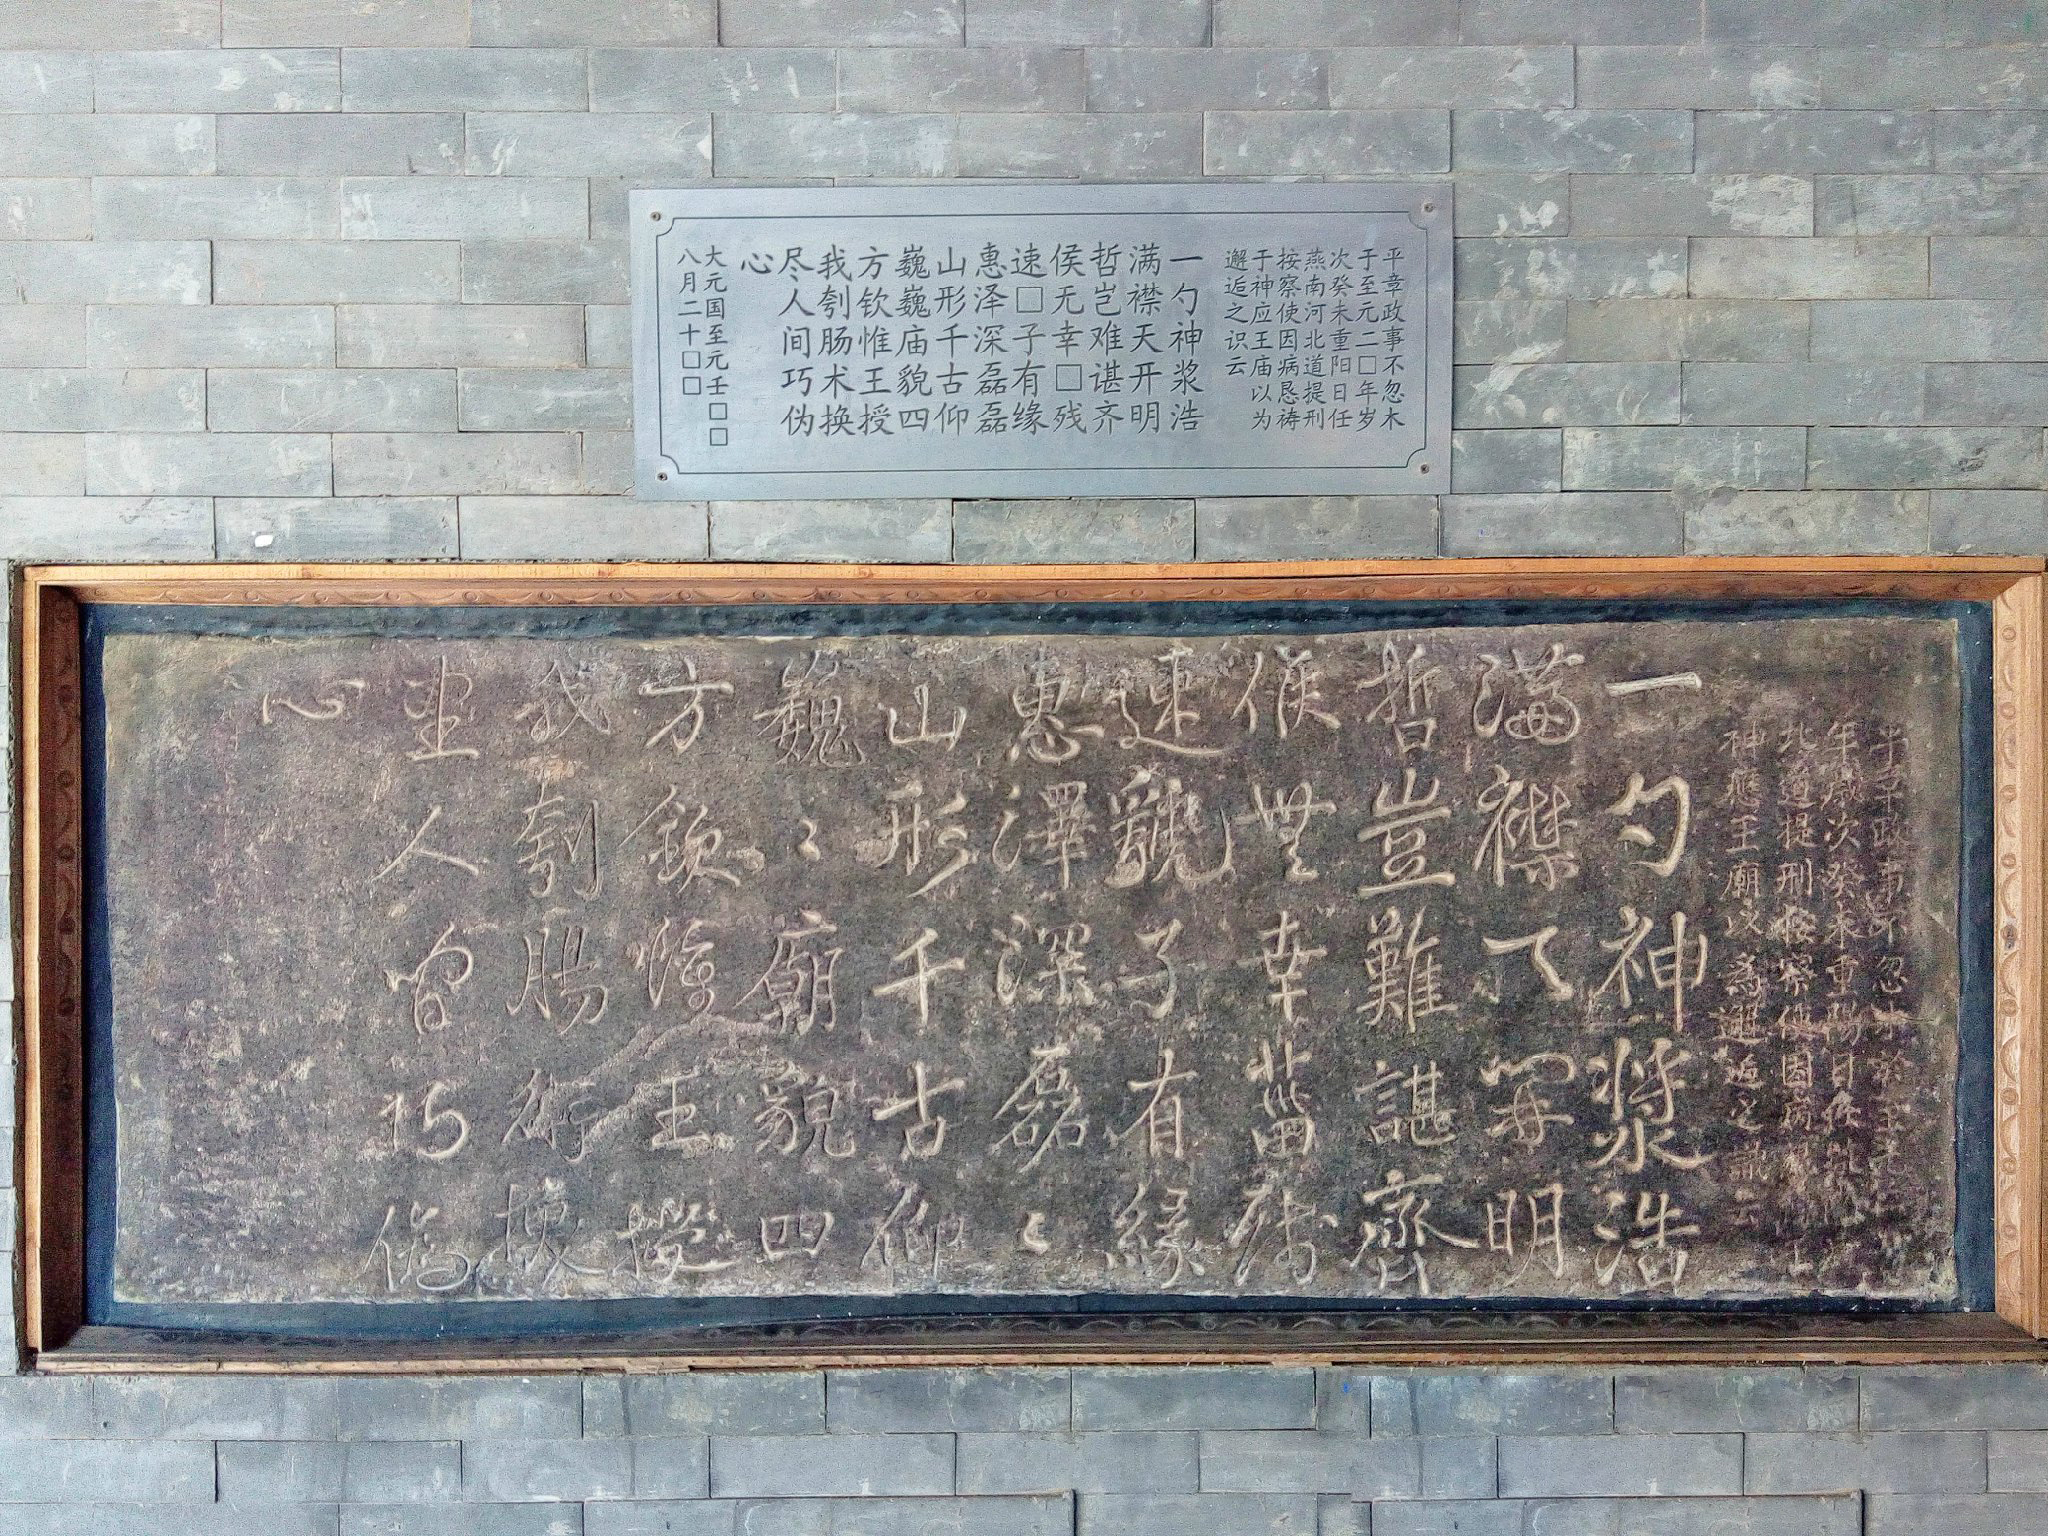 平章政事不忽木
于至元二□年岁
次癸未重阳日任
燕南河北道提刑
按察使因病恳祷
于神应王庙以为
邂逅之识云
一勺神浆浩
满襟天开明
哲岂难谌齐
侯无幸□残
速□子有缘
惠泽深磊磊
山形千古仰
巍巍庙貌四
方钦惟王授
我刳肠术换
尽人间巧伪
心
大元国至元壬□□
八月二十□□
政事不忽
年歲次癸未重陽日任
北道提刑按察使因病
神應王廟以為邂逅之識云
一勺神漿浩
滿襟天開明
哲豈難諶齊
侯無幸菑殘
速貌子有緣
惠澤深磊〻
山形千古仰
巍〻廟貌四
方欽惟王授
我刳腸術換
盡人間巧偽
心